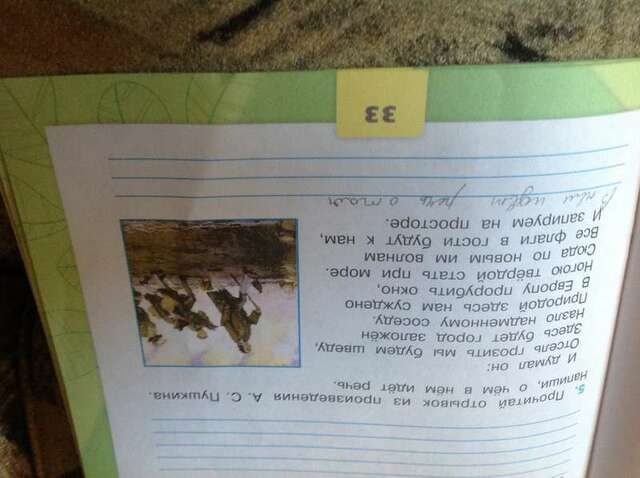 5. Прочитай отрывок из произведения А. С. Пушкина.
Напиши, о чём в нём идёт речь.
И думал он:
Отсель грозить мы будем шведу,
Здесь будет город заложён
Назло надменному соседу.
Природой здесь нам суждено
В Европу прорубить окно,
Ногою твёрдой стать при море.
Сюда по новым им волнам
Все флаги в гости будут к нам,
И запируем на просторе.
В нём идёт речь о том
33